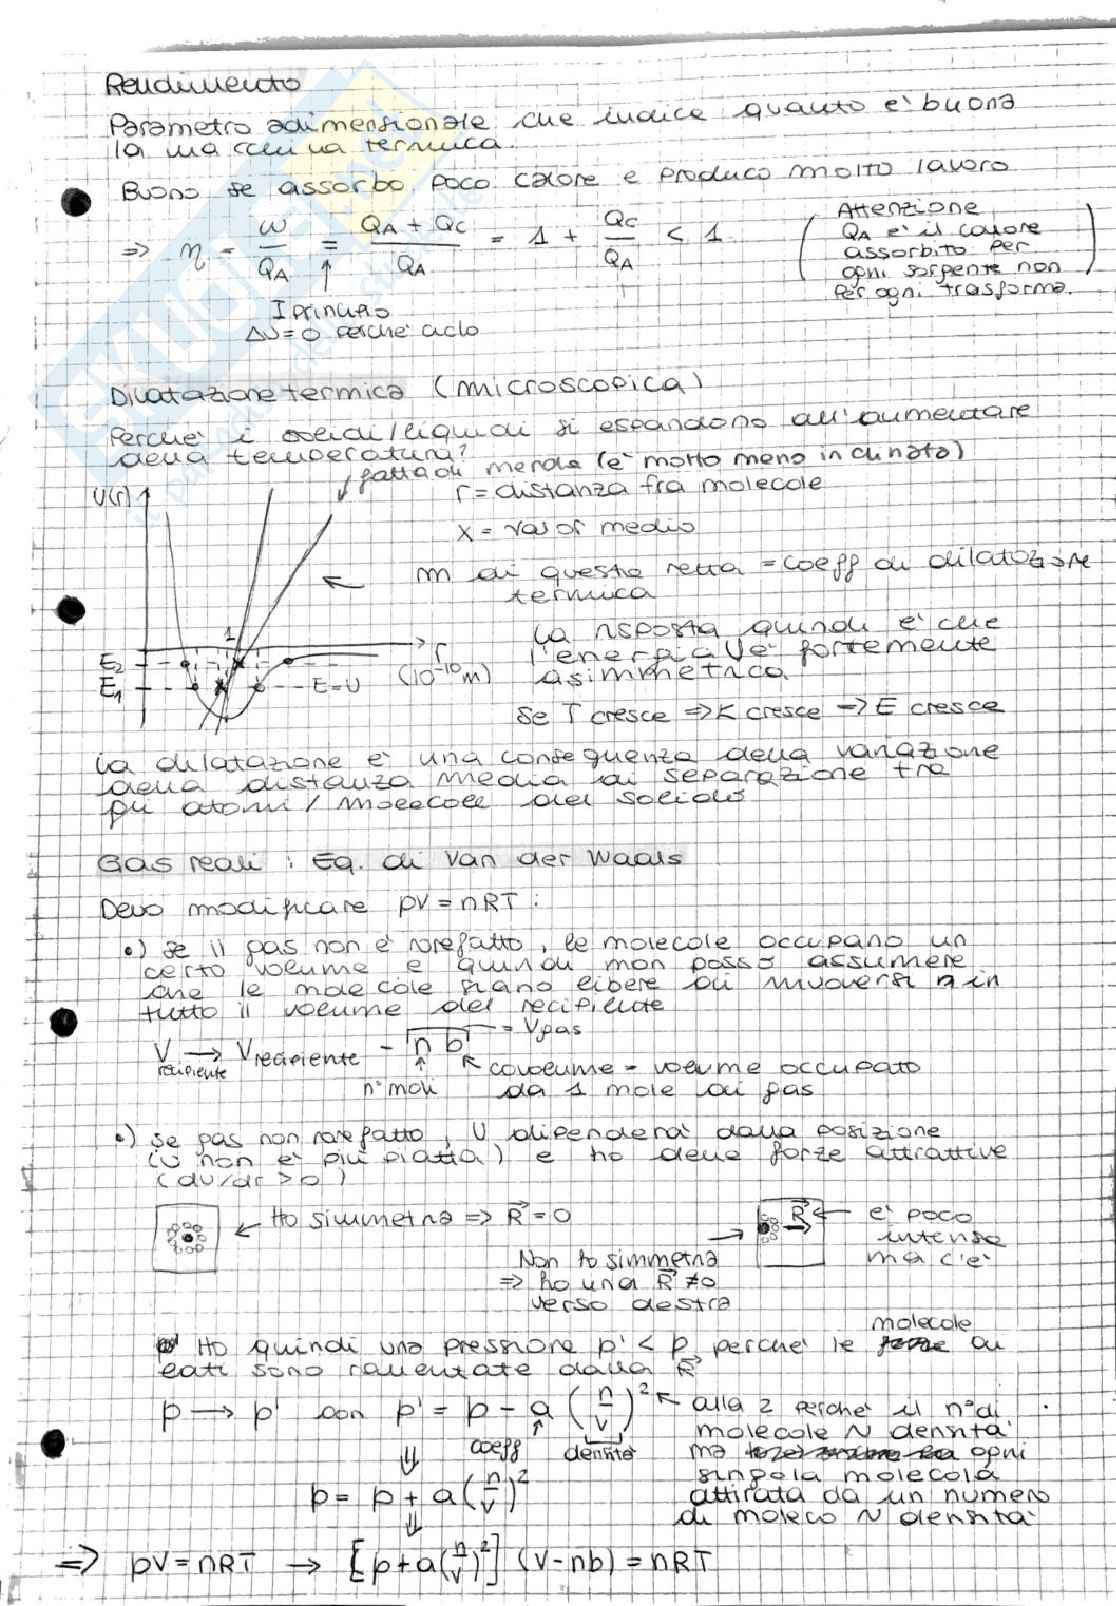 Rendimento
Parametro adimensionale che indice quanto e' buona
la macchina termica.
Buono se assorbo poco calore e produco molto lavoro
=> η = W/QA = QA + QC/QA = 1 + QC/QA < 1
(Attenzione
QA e' il calore
assorbito per
ogni sorgente non
per ogni trasforma.)
I principio
ΔU = 0 perche' ciclo
Dilatazione termica (microscopica)
Perche' i solidi/liquidi si espandono all'aumentare
della temperatura?
fatta di merda (e' molto meno inclinata)
U(r)
r = distanza fra molecole
x = valor medio
m di questa retta = coeff di dilatazione
termica
1
r
(10⁻¹⁰m)
E2
E1
E=U
La risposta quindi e' che
l'energia U e' fortemente
asimmetrica
Se T cresce => K cresce -> E cresce
La dilatazione e' una conseguenza della variazione
della distanza media di separazione tra
gli atomi/molecole del solido
Gas reali : Eq. di Van der Waals
Devo modificare pV = nRT :
•) se il gas non e' rarefatto, le molecole occupano un
certo volume e quindi non posso assumere
che le molecole siano libere di muoversi in
tutto il volume del recipiente
V recipiente → V recipiente - n b = Vgas
n° moli
covolume = volume occupato
da 1 mole di gas
•) se gas non rarefatto, U dipendera' dalla posizione
(U non e' piu' piatta) e ho delle forze attrattive
(dU/dr > 0)
Ho simmetria => R⃗ = 0
Non ho simmetria
=> ho una R⃗ ≠ 0
verso destra
R⃗
e' poco
intensa
ma c'e'
Ho quindi una pressione p' < p perche' le molecole ai
lati sono rallentate dalla R⃗
p → p' con p' = p - a (n/V)²
coeff
densita'
alla 2 perche' il n° di
molecole ~ densita'
ma ogni
singola molecola
attirata da un numero
di moleco ~ densita'
⇓
p = p + a(n/V)²
⇓
=> pV = nRT → [p + a(n/V)²] (V - nb) = nRT